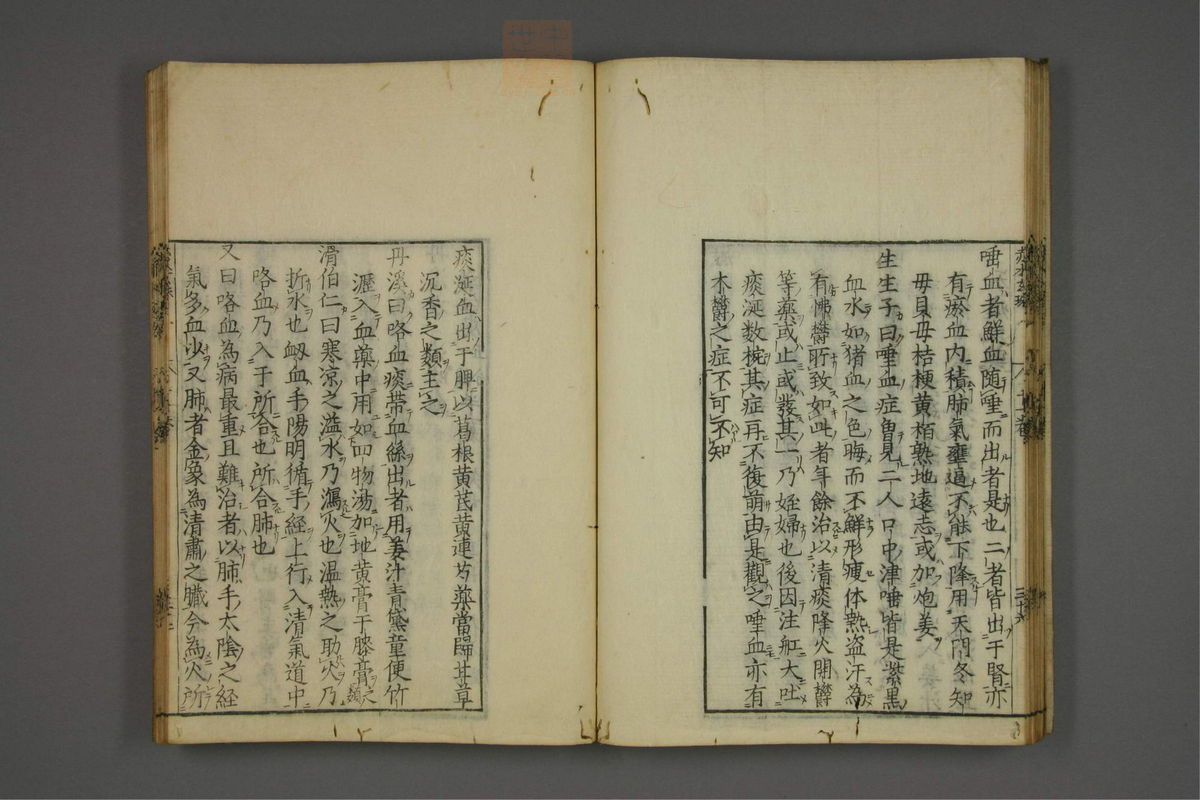 唾血者鮮血随唾而出者是也二者皆出于腎亦
有瘀血内積肺氣壅遏不能下降用天門冬知
母貝母桔梗黄栢熟地遠志或加炮姜
生生子曰唾血症曽見二人口中津唾皆是紫黒
血水如猪血之色晦而不鮮形痩体熱盗汗為
有怫欝所致如此者年餘治以清痰降火開欝
等薬或止或發其一乃姙婦也後因注舡大吐
痰涎数椀其症再不復萌由是觀之唾血亦有
木欝之症不可不知
痰涎血出于脾以葛根黄芪黄連芍薬當歸甘草
沉香之類主之
丹溪曰咯血痰帯血絲出者用姜汁青黛童便竹
瀝入血薬中用如四物湯加地黄膏牛膝膏之類
滑伯仁曰寒凉之溢水乃瀉火也温熱之助火乃
折水也衂血手陽明循手經上行入清氣道中
咯血乃入于所合也所合肺也
又曰咯血為病最重且難治者以肺手太陰之經
氣多血少又肺者金象為清肅之臓今為火所